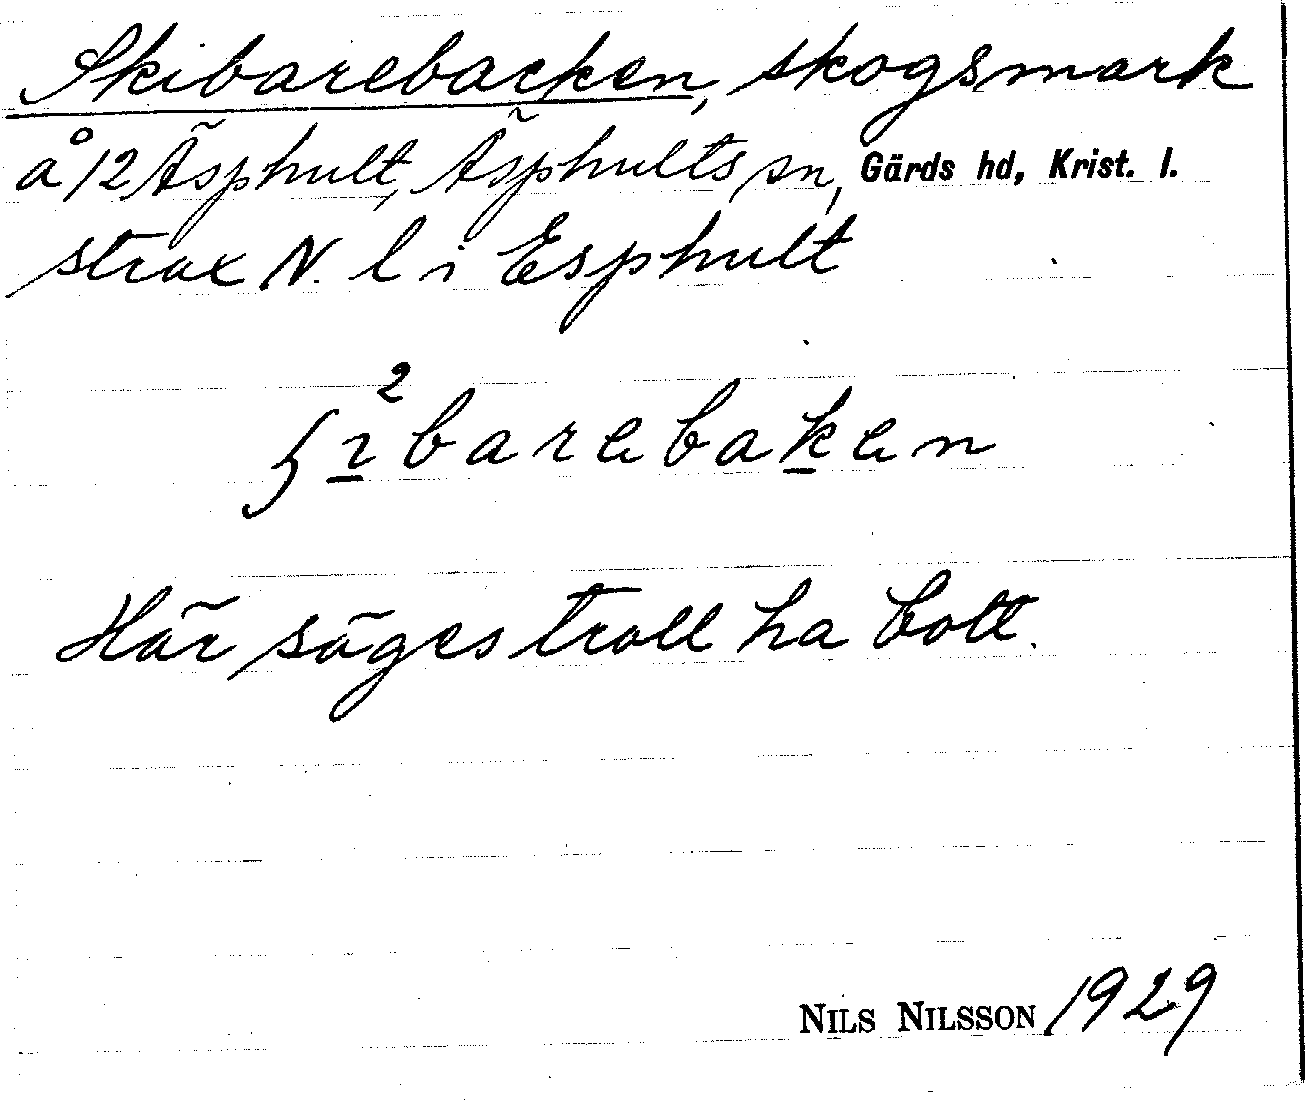 Skibarebacken, skogsmark
å 12 Äsphult, Äsphults sn, Gärds hd, Krist. l.
strax N. l i Esphult
ʃı²barebaken
Här säges troll ha bott.
NILS NILSSON 1929